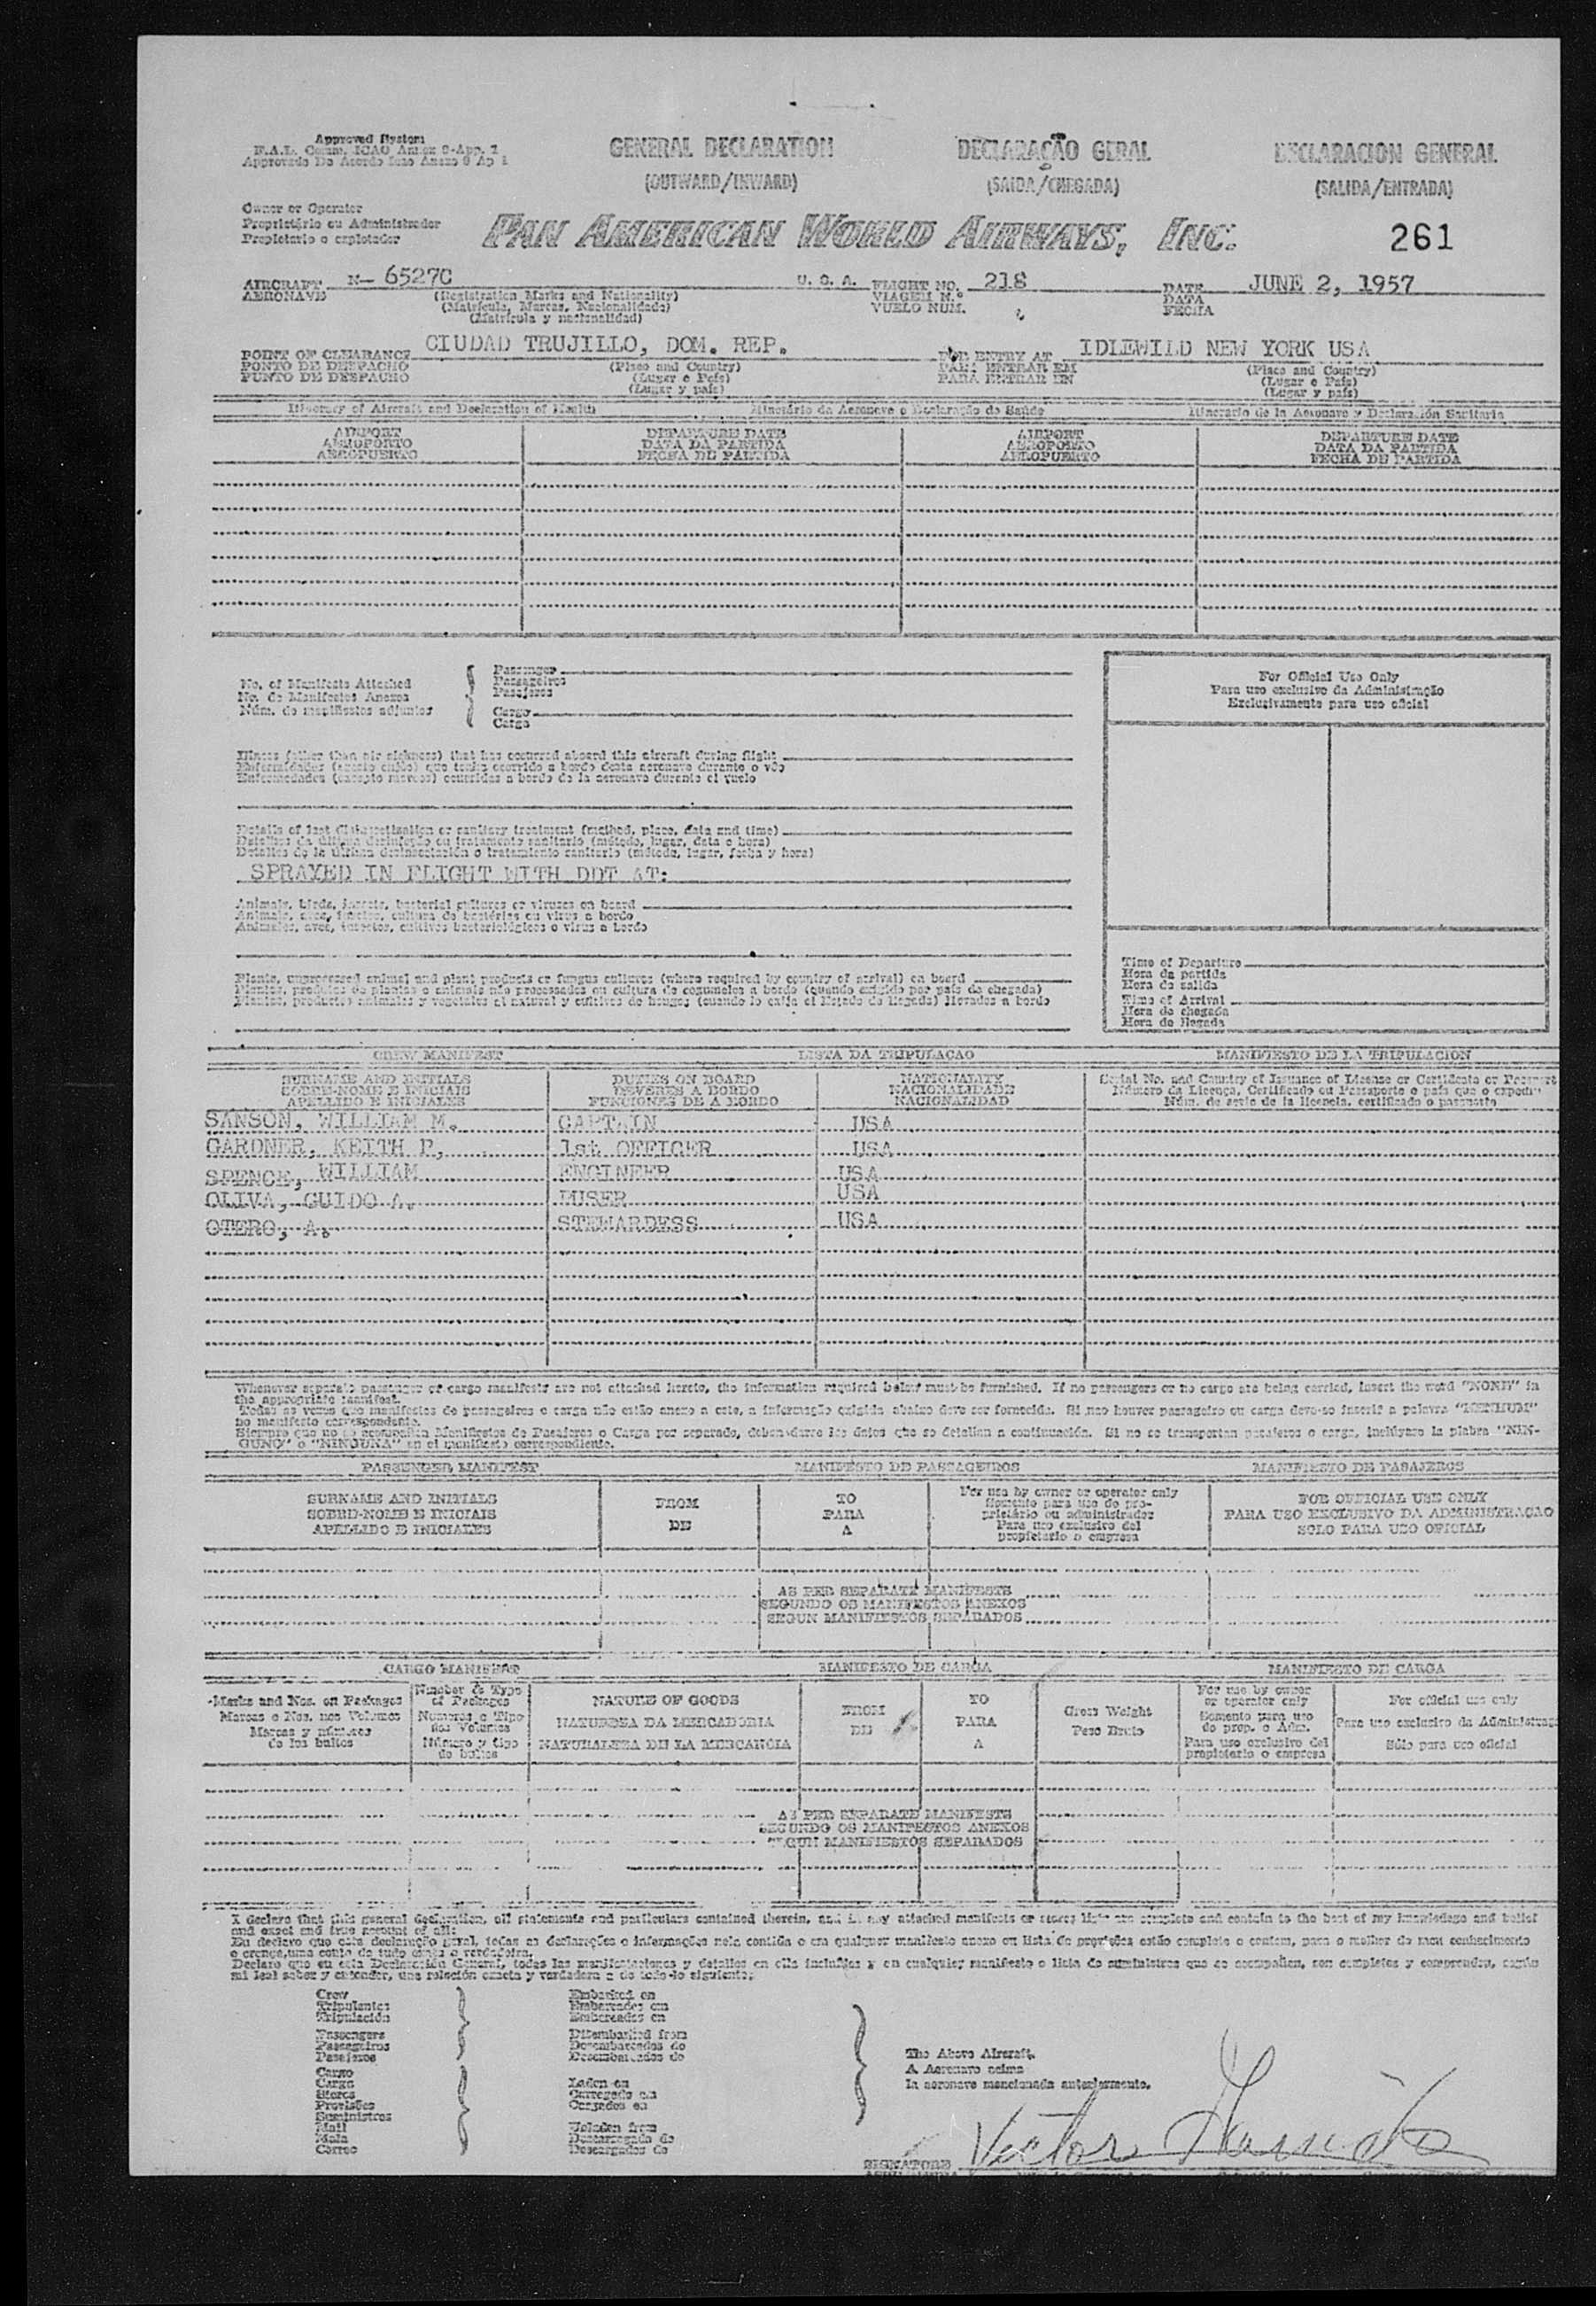 Approved System
F.A.L. Comm. ICAO Annex 9-App. 1
GENERAL DECLARATION
(OUTWARD/INWARD)
DECLARAÇÃO GERAL
(SAIDA/CHEGADA)
DECLARACION GENERAL
(SALIDA/ENTRADA)
Owner or Operator
Proprietário ou Administrador
Propietario o explotador
PAN AMERICAN WORLD AIRWAYS, INC.
261
AIRCRAFT N- 6527C U. S. A. FLIGHT NO. 218 DATE JUNE 2, 1957
AERONAVE (Registration Marks and Nationality) VIAGEM N.º DATA
(Matrícula, Marcas, Nacionalidade) VUELO NUM. FECHA
(Matrícula y nacionalidad)
POINT OF CLEARANCE CIUDAD TRUJILLO, DOM. REP. FOR ENTRY AT IDLEWILD NEW YORK USA
PONTO DE DESPACHO (Place and Country) PARA ENTRAR EM (Place and Country)
PUNTO DE DESPACHO (Lugar e País) PARA ENTRAR EN (Lugar e País)
(Lugar y país) (Lugar y país)
Itinerary of Aircraft and Declaration of Health Itinerário da Aeronave e Declaração de Saúde Itinerario de la Aeronave y Declaración Sanitaria
AIRPORT DEPARTURE DATE AIRPORT DEPARTURE DATE
AEROPORTO DATA DA PARTIDA AEROPORTO DATA DA PARTIDA
AEROPUERTO FECHA DE PARTIDA AEROPUERTO FECHA DE PARTIDA
No. of Manifests Attached
No. de Manifestos Anexos
Núm. de manifiestos adjuntos
Passenger
Passageiros
Pasajeros
Cargo
Carga
For Official Use Only
Para uso exclusivo da Administração
Exclusivamente para uso oficial
Illness (other than air sickness) that has occurred aboard this aircraft during flight
Enfermidades (exceto enjôo) que tenha ocorrido a bordo desta aeronave durante o vôo
Enfermedades (excepto mareos) ocurridas a bordo de la aeronave durante el vuelo
Details of last disinsectization or sanitary treatment (method, place, date and time)
Detalhes da última desinfeção ou tratamento sanitário (método, lugar, data e hora)
Detalles de la última desinsectación o tratamiento sanitario (método, lugar, fecha y hora)
SPRAYED IN FLIGHT WITH DDT AT:
Animals, birds, insects, bacterial cultures or viruses on board
Animais, aves, insetos, cultura de bactérias ou virus a bordo
Animales, aves, insectos, cultivos bacteriológicos o virus a bordo
Plants, unprocessed animal and plant products or fungus cultures (where required by country of arrival) on board
Plantas, produtos de plantas e animais não processados ou cultura de cogumelos a bordo (quando exigido por país de chegada)
Plantas, productos animales y vegetales al natural y cultivos de hongos (cuando lo exija el Estado de llegada) llevados a bordo
Time of Departure
Hora da partida
Hora de salida
Time of Arrival
Hora de chegada
Hora de llegada
CREW MANIFEST LISTA DA TRIPULAÇAO MANIFIESTO DE LA TRIPULACION
SURNAME AND INITIALS DUTIES ON BOARD NATIONALITY Serial No. and Country of Issuance of License or Certificate or Passport
SOBRE-NOME E INICIAIS DEVERES A BORDO NACIONALIDADE
APELLIDO E INICIALES FUNCIONES DE A BORDO NACIONALIDAD Núm. de serie de la licencia, certificado o pasaporte
SANSON, WILLIAM M. CAPTAIN USA
GARDNER, KEITH P. 1st OFFICER USA
SPENCE, WILLIAM ENGINEER USA
OLIVA, GUIDO A. PUSER USA
OTERO, A. STEWARDESS USA
Whenever separate passenger or cargo manifests are not attached hereto, the information required below must be furnished. If no passengers or no cargo are being carried, insert the word "NONE" in
the appropriate manifest.
Todas as vezes que manifestos de passageiros e carga não estão anexo a este, a informação exigida abaixo deve ser fornecida. Si nao houver passageiro ou carga deve-se inserir a palavra "NENHUM"
no manifesto correspondente.
Siempre que no se acompañen Manifiestos de Pasajeros o Carga por separado, deben darse los datos que se detallan a continuación. Si no se transportan pasajeros o carga, inclúyase la plabra "NIN-
GUNO" o "NINGUNA" en el manifiesto correspondiente.
PASSENGER MANIFEST MANIFESTO DE PASSAGEIROS MANIFIESTO DE PASAJEROS
SURNAME AND INITIALS FROM TO For use by owner or operator only FOR OFFICIAL USE ONLY
SOBRE-NOME E INICIAIS DE PARA Somente para uso do pro- PARA USO EXCLUSIVO DA ADMINISTRAÇAO
APELLIDO E INICIALES A prietário ou administrador SOLO PARA USO OFICIAL
Para uso exclusivo del
propietario o empresa
AS PER SEPARATE MANIFESTS
SEGUNDO OS MANIFESTOS ANEXOS
SEGUN MANIFIESTOS SEPARADOS
CARGO MANIFEST MANIFESTO DE CARGA MANIFIESTO DE CARGA
Marks and Nos. on Packages
Marcas e Nos. nos Volumes
Marcas y números
de los bultos
Number & Type
of Packages
Numeros e Tipo
dos Volumes
Número y tipo
de bultos
NATURE OF GOODS
NATUREZA DA MERCADORIA
NATURALEZA DE LA MERCANCIA
FROM
DE
TO
PARA
A
Gross Weight
Peso Bruto
For use by owner
or operator only
Somente para uso
do prop. o Adm.
Para uso exclusivo del
propietario o empresa
For official use only
Para uso exclusivo da Administraç
Sólo para uso oficial
AS PER SEPARATE MANIFESTS
SEGUNDO OS MANIFESTOS ANEXOS
SEGUN MANIFIESTOS SEPARADOS
I declare that this general declaration, all statements and particulars contained therein, and in any attached manifests or stores lists are complete and contain to the best of my knowledge and belief
and exact and true account of all:
Eu declaro que esta declaração geral, todas as declarações e informações nela contida e em qualquer manifesto anexo ou lista de provisões estão completo e contem, para o melhor do meu conhecimento
e crença, uma conta de tudo exata e verdadeira.
Declaro que en esta Declaración General, todas las manifestaciones y detalles en ella incluídas y en cualquier manifiesto o lista de suministros que se acompañen, son completos y comprenden, según
mi leal saber y entender, una relación exacta y verdadera de todo lo siguiente:
Crew
Tripulantes
Tripulación
Passengers
Passageiros
Pasajeros
Cargo
Carga
Stores
Provisões
Suministros
Mail
Mala
Correo
Embarked on
Embarcados em
Embarcados en
Disembarked from
Desembarcados do
Desembarcados de
Laden on
Carregado em
Cargados en
Unladen from
Descarregado do
Descargados de
The Above Aircraft.
A Aeronave acima
La aeronave mencionada anteriormente.
SIGNATURE Victor